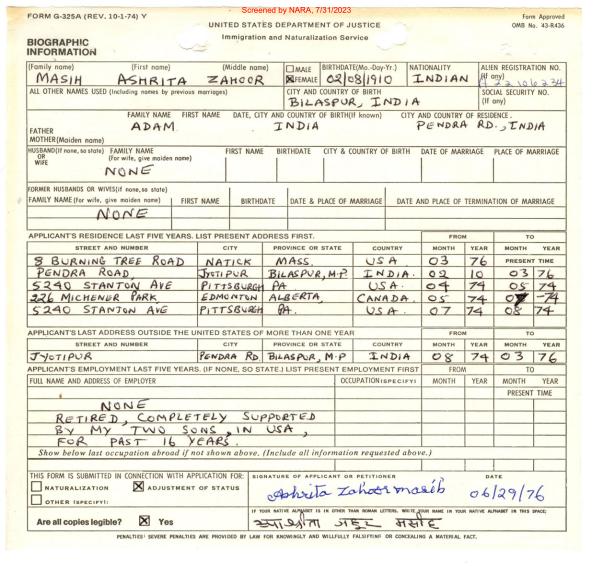 Screened by NARA, 7/31/2023
FORM G-325A (REV. 10-1-74) Y
UNITED STATES DEPARTMENT OF JUSTICE
Immigration and Naturalization Service
Form Approved
OMB No. 43-R436
BIOGRAPHIC
INFORMATION
(Family name) (First name) (Middle name) MALE BIRTHDATE(Mo.-Day-Yr.) NATIONALITY ALIEN REGISTRATION NO.
MASIH ASHRITA ZAHOOR FEMALE 02/08/1910 INDIAN (If any) A22106234
ALL OTHER NAMES USED (Including names by previous marriages) CITY AND COUNTRY OF BIRTH SOCIAL SECURITY NO.
BILASPUR, INDIA (If any)
FAMILY NAME FIRST NAME DATE, CITY AND COUNTRY OF BIRTH(If known) CITY AND COUNTRY OF RESIDENCE.
FATHER ADAM INDIA PENDRA RD., INDIA
MOTHER(Maiden name)
HUSBAND(If none, so state) FAMILY NAME FIRST NAME BIRTHDATE CITY & COUNTRY OF BIRTH DATE OF MARRIAGE PLACE OF MARRIAGE
OR (For wife, give maiden name)
WIFE NONE
FORMER HUSBANDS OR WIVES(if none,so state)
FAMILY NAME (For wife, give maiden name) FIRST NAME BIRTHDATE DATE & PLACE OF MARRIAGE DATE AND PLACE OF TERMINATION OF MARRIAGE
NONE
APPLICANT'S RESIDENCE LAST FIVE YEARS. LIST PRESENT ADDRESS FIRST. FROM TO
STREET AND NUMBER CITY PROVINCE OR STATE COUNTRY MONTH YEAR MONTH YEAR
8 BURNING TREE ROAD NATICK MASS. USA 03 76 PRESENT TIME
PENDRA ROAD, JYOTIPUR BILASPUR, M.P. INDIA. 02 10 03 76
5240 STANTON AVE PITTSBURGH PA USA. 04 74 05 74
226 MICHENER PARK EDMONTON ALBERTA, CANADA. 05 74 -74
5240 STANTON AVE PITTSBURGH PA. USA. 07 74 08 74
APPLICANT'S LAST ADDRESS OUTSIDE THE UNITED STATES OF MORE THAN ONE YEAR FROM TO
STREET AND NUMBER CITY PROVINCE OR STATE COUNTRY MONTH YEAR MONTH YEAR
JYOTIPUR PENDRA RD. BILASPUR, M.P INDIA 08 74 03 76
APPLICANT'S EMPLOYMENT LAST FIVE YEARS. (IF NONE, SO STATE.) LIST PRESENT EMPLOYMENT FIRST FROM TO
FULL NAME AND ADDRESS OF EMPLOYER OCCUPATION(SPECIFY) MONTH YEAR MONTH YEAR
PRESENT TIME
NONE
RETIRED, COMPLETELY SUPPORTED
BY MY TWO SONS, IN USA,
FOR PAST 16 YEARS.
Show below last occupation abroad if not shown above. (Include all information requested above.)
THIS FORM IS SUBMITTED IN CONNECTION WITH APPLICATION FOR: SIGNATURE OF APPLICANT OR PETITIONER DATE
NATURALIZATION ADJUSTMENT OF STATUS Ashrita Zahoor masih 06/29/76
OTHER (SPECIFY):
IF YOUR NATIVE ALPHABET IS IN OTHER THAN ROMAN LETTERS, WRITE YOUR NAME IN YOUR NATIVE ALPHABET IN THIS SPACE:
Are all copies legible? Yes जहूर मसीह
PENALTIES: SEVERE PENALTIES ARE PROVIDED BY LAW FOR KNOWINGLY AND WILLFULLY FALSIFYING OR CONCEALING A MATERIAL FACT.